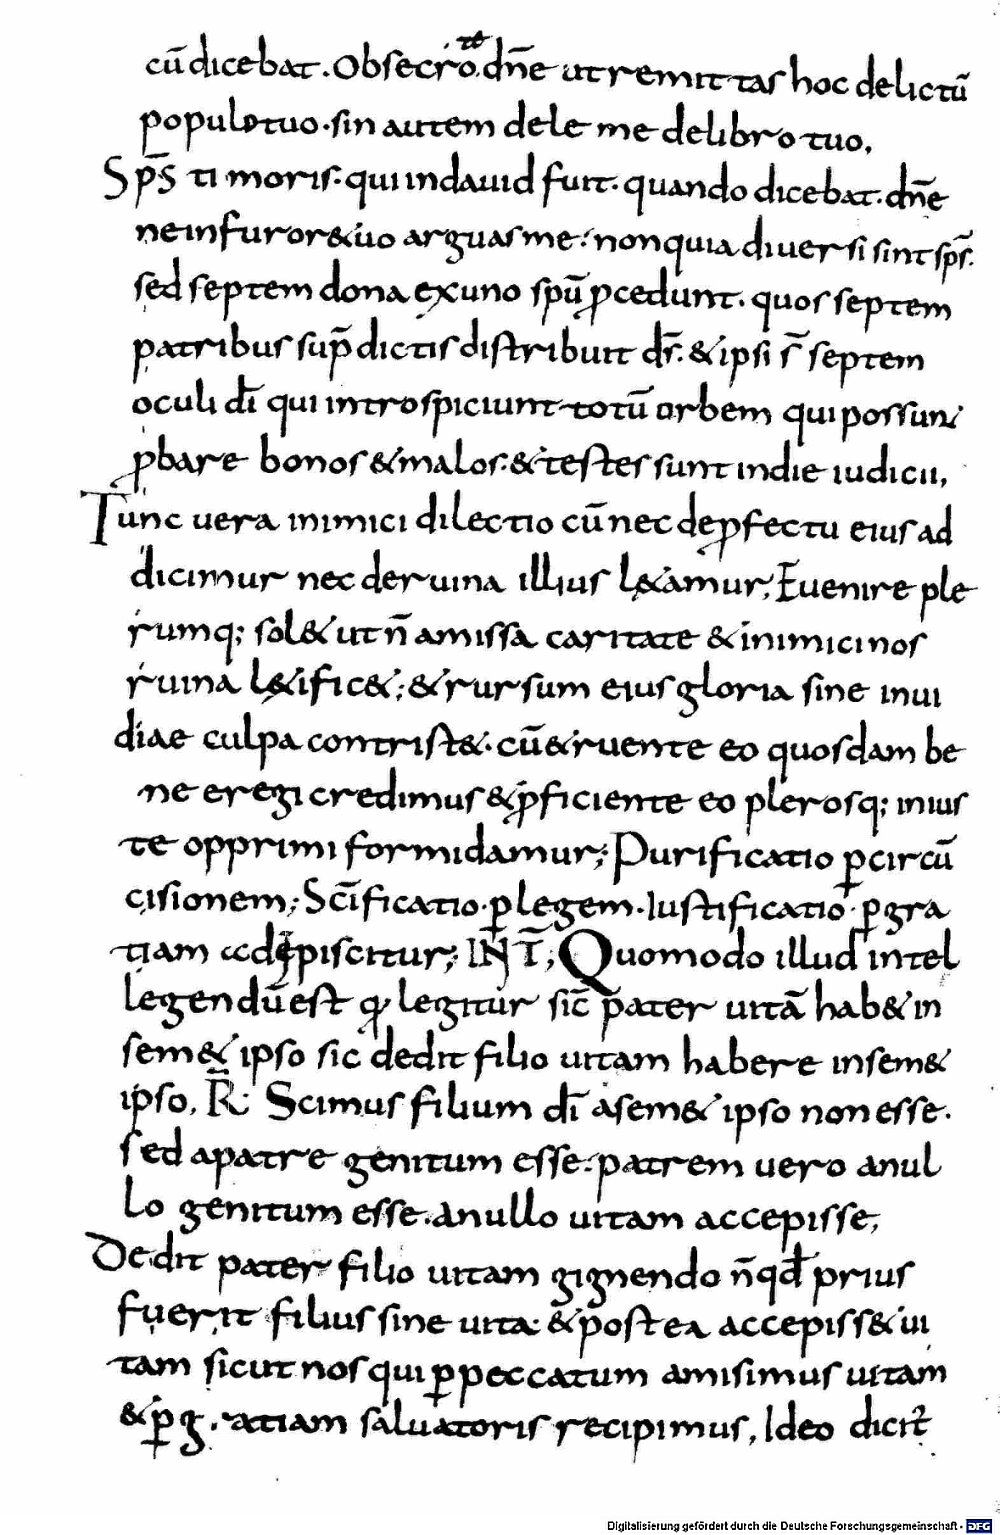 cū dicebat. Obsecro te dn̄e ut remittas hoc delictū
populo tuo. sin autem dele me de libro tuo,
Sp̄s timoris. qui in dauid fuit. quando dicebat. dn̄e
ne in furore tuo arguas me. non quia diuersi sint sp̄s.
sed septem dona ex uno spū ꝓcedunt. quos septem
patribus sup̄dictis distribuit dr̄. & ipsi s̄ septem
oculi dī qui introspiciunt totū orbem qui possunt
ꝓbare bonos & malos. & testes sunt in die iudicii,
Tunc uera inimici dilectio cū nec de ꝓfectu eius ad
dicimur nec de ruina illius l&amur; Euenire ple
rumq; sol& ut n̄ amissa caritate & inimici nos
ruina l&ific&; & rursum eius gloria sine inui
diae culpa contrist&. cū & ruente eo quosdam be
ne eregi credimus & ꝓficiente eo plerosq; inius
te opprimi formidamur; Purificatio ꝑ circū
cisionem; Scīficatio ꝑ legem. Iustificatio ꝑ gra
tiam adipiscitur; INT̄; Quomodo illud intel
legendū est qđ legitur sic̄ pater uitā hab& in
sem& ipso sic dedit filio uitam habere in sem&
ipso, R̄ Scimus filium dī a sem& ipso non esse.
sed a patre genitum esse. patrem uero a nul
lo genitum esse. a nullo uitam accepisse;
Dedit pater filio uitam gignendo n̄ qđ prius
fuerit filius sine uita. & postea accepiss& ui
tam sicut nos qui ꝑ peccatum amisimus uitam
& ꝑ gratiam saluatoris recipimus, Ideo dicit̄
Digitalisierung gefördert durch die Deutsche Forschungsgemeinschaft - DFG